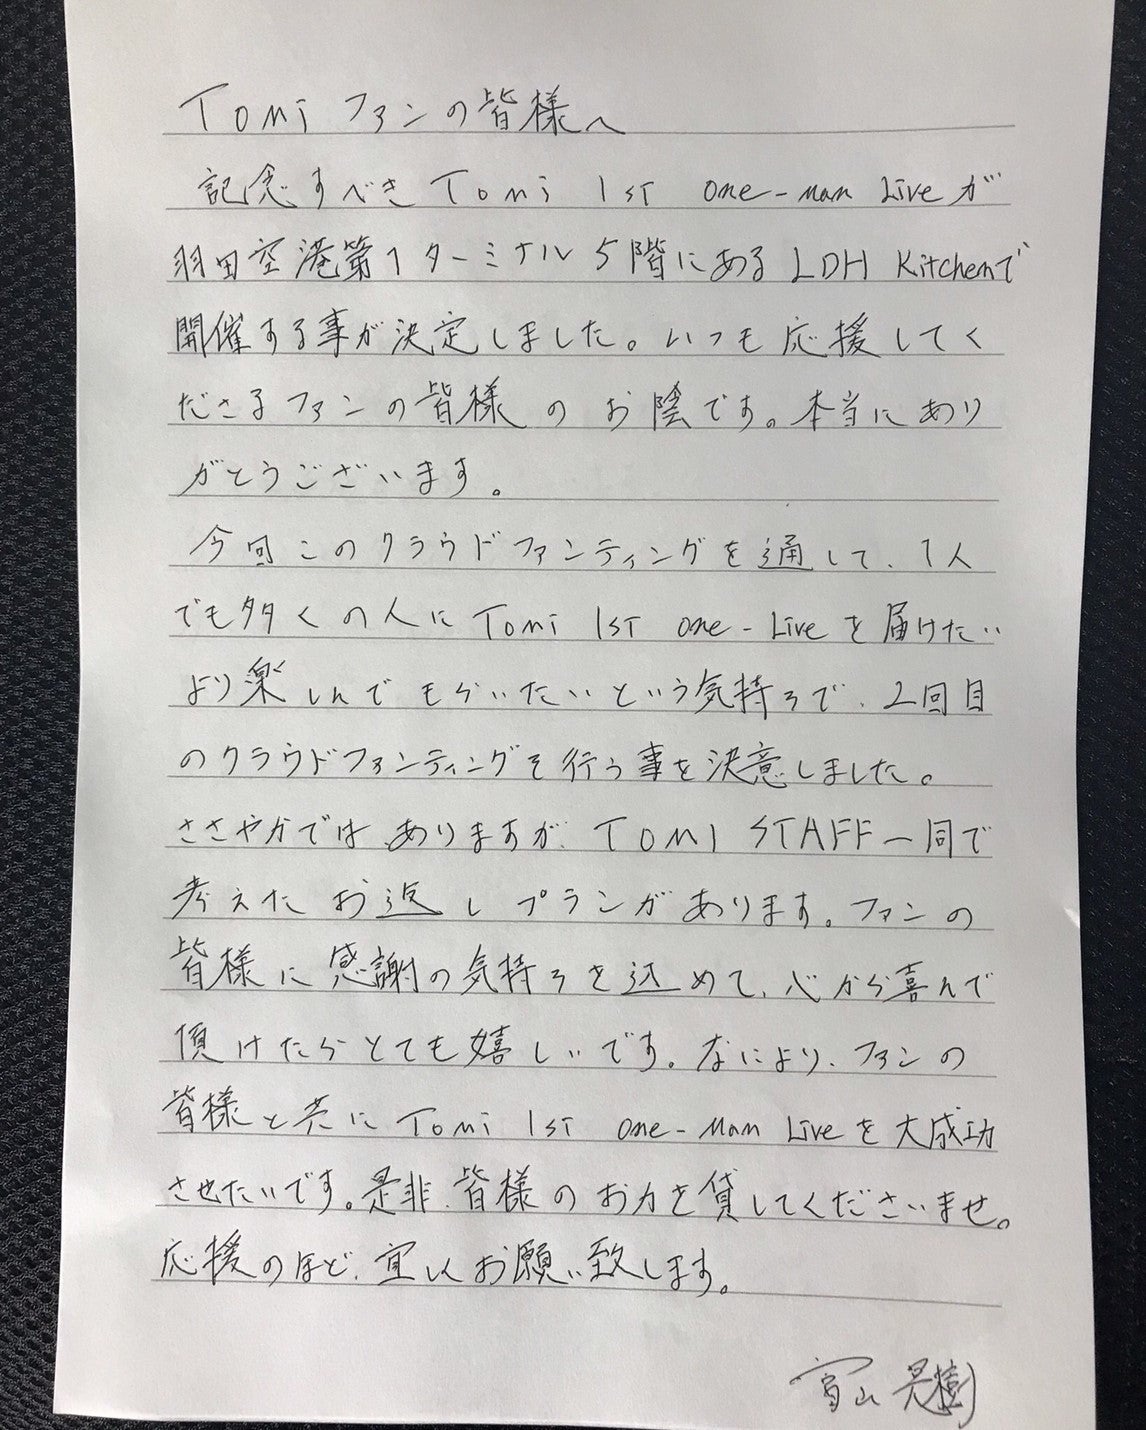 Tomi ファンの皆様へ
記念すべき Tomi 1st one-man Liveが
羽田空港第1ターミナル5階にある LDH Kitchenで
開催する事が決定しました。いつも応援してく
ださるファンの皆様のお陰です。本当にあり
がとうございます。
今回このクラウドファンディングを通して、1人
でも多くの人に Tomi 1st one-Liveを届けたい
より楽しんでもらいたいという気持ちで、2回目
のクラウドファンディングを行う事を決意しました。
ささやかではありますが、TOMI STAFF一同で
考えたお返しプランがあります。ファンの
皆様に感謝の気持ちを込めて、心から喜んで
頂けたらとても嬉しいです。なにより、ファンの
皆様と共に Tomi 1st one-man Liveを大成功
させたいです。是非、皆様のお力を貸してくださいませ。
応援のほど、宜しくお願い致します。
富山